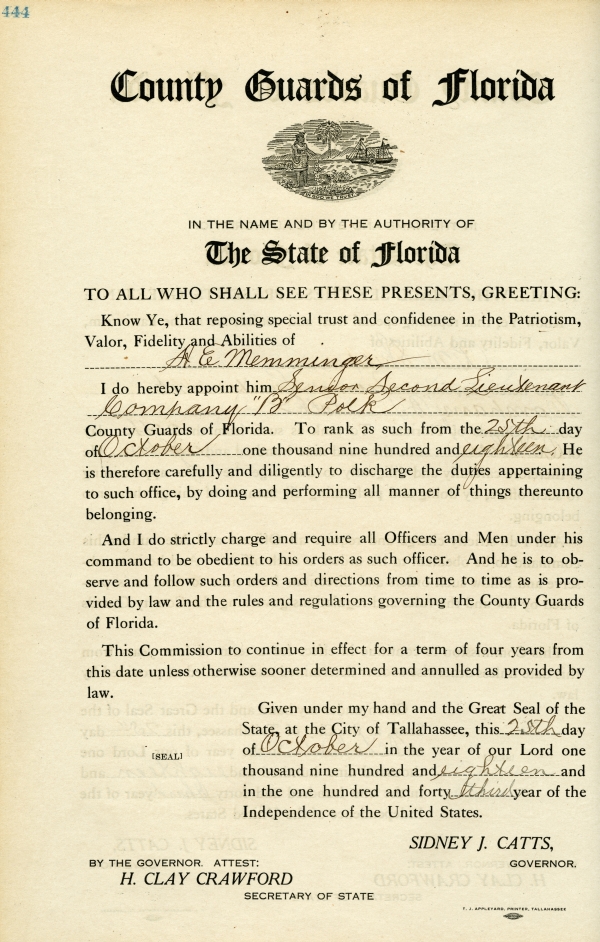 444
County Guards of Florida
IN GOD WE TRUST
IN THE NAME AND BY THE AUTHORITY OF
The State of Florida
TO ALL WHO SHALL SEE THESE PRESENTS, GREETING:
Know Ye, that reposing special trust and confidence in the Patriotism,
Valor, Fidelity and Abilities of
A. E. Memminger
I do hereby appoint him Senior Second Lieutenant
Company "B" Polk
County Guards of Florida. To rank as such from the 25th day
of October one thousand nine hundred and eighteen. He
is therefore carefully and diligently to discharge the duties appertaining
to such office, by doing and performing all manner of things thereunto
belonging.
And I do strictly charge and require all Officers and Men under his
command to be obedient to his orders as such officer. And he is to ob-
serve and follow such orders and directions from time to time as is pro-
vided by law and the rules and regulations governing the County Guards
of Florida.
This Commission to continue in effect for a term of four years from
this date unless otherwise sooner determined and annulled as provided by
law.
Given under my hand and the Great Seal of the
State, at the City of Tallahassee, this 25th day
of October in the year of our Lord one
[SEAL]
thousand nine hundred and eighteen and
in the one hundred and forty third year of the
Independence of the United States.
SIDNEY J. CATTS,
GOVERNOR.
BY THE GOVERNOR. ATTEST:
H. CLAY CRAWFORD
SECRETARY OF STATE
T. J. APPLEYARD, PRINTER, TALLAHASSEE